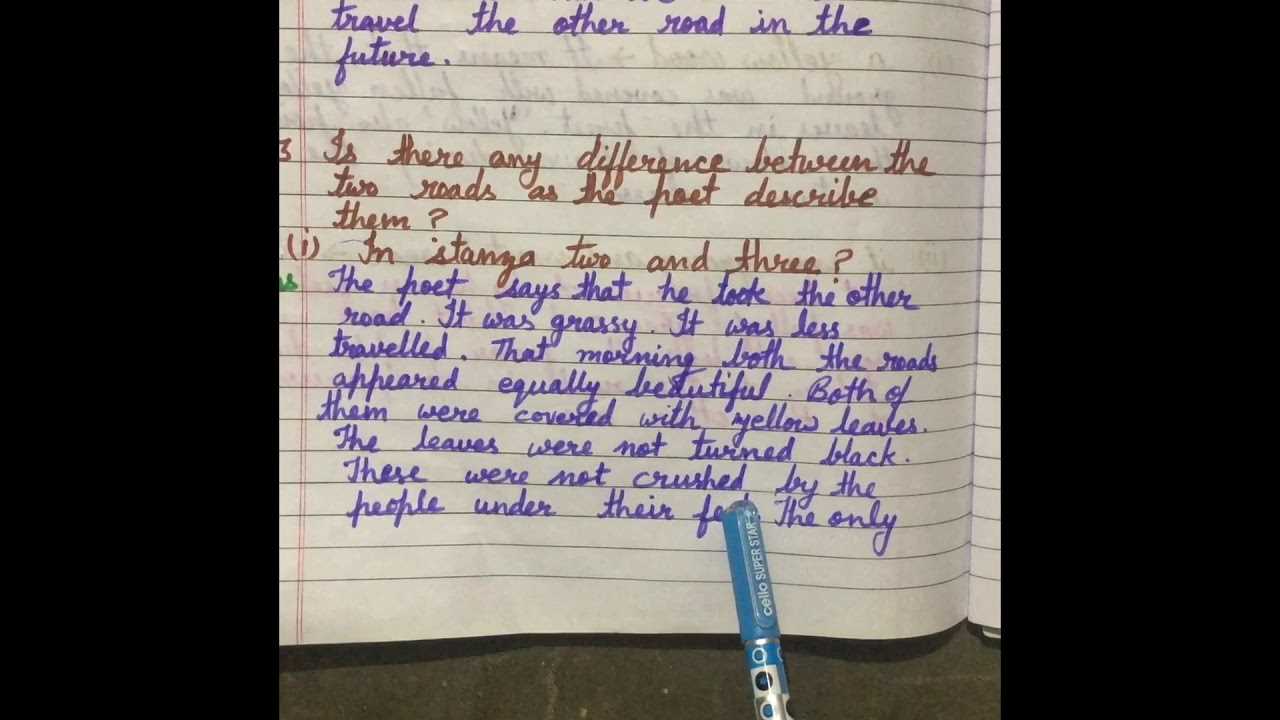 travel the other road in the
future.
3 Is there any difference between the
two roads as the poet describe
them?
(i) In stanza two and three?
The poet says that he took the other
road. It was grassy. It was less
travelled. That morning both the roads
appeared equally beutiful. Both of
them were covered with yellow leaves.
The leaves were not turned black.
These were not crushed by the
people under their The only
cello SUPER STAR